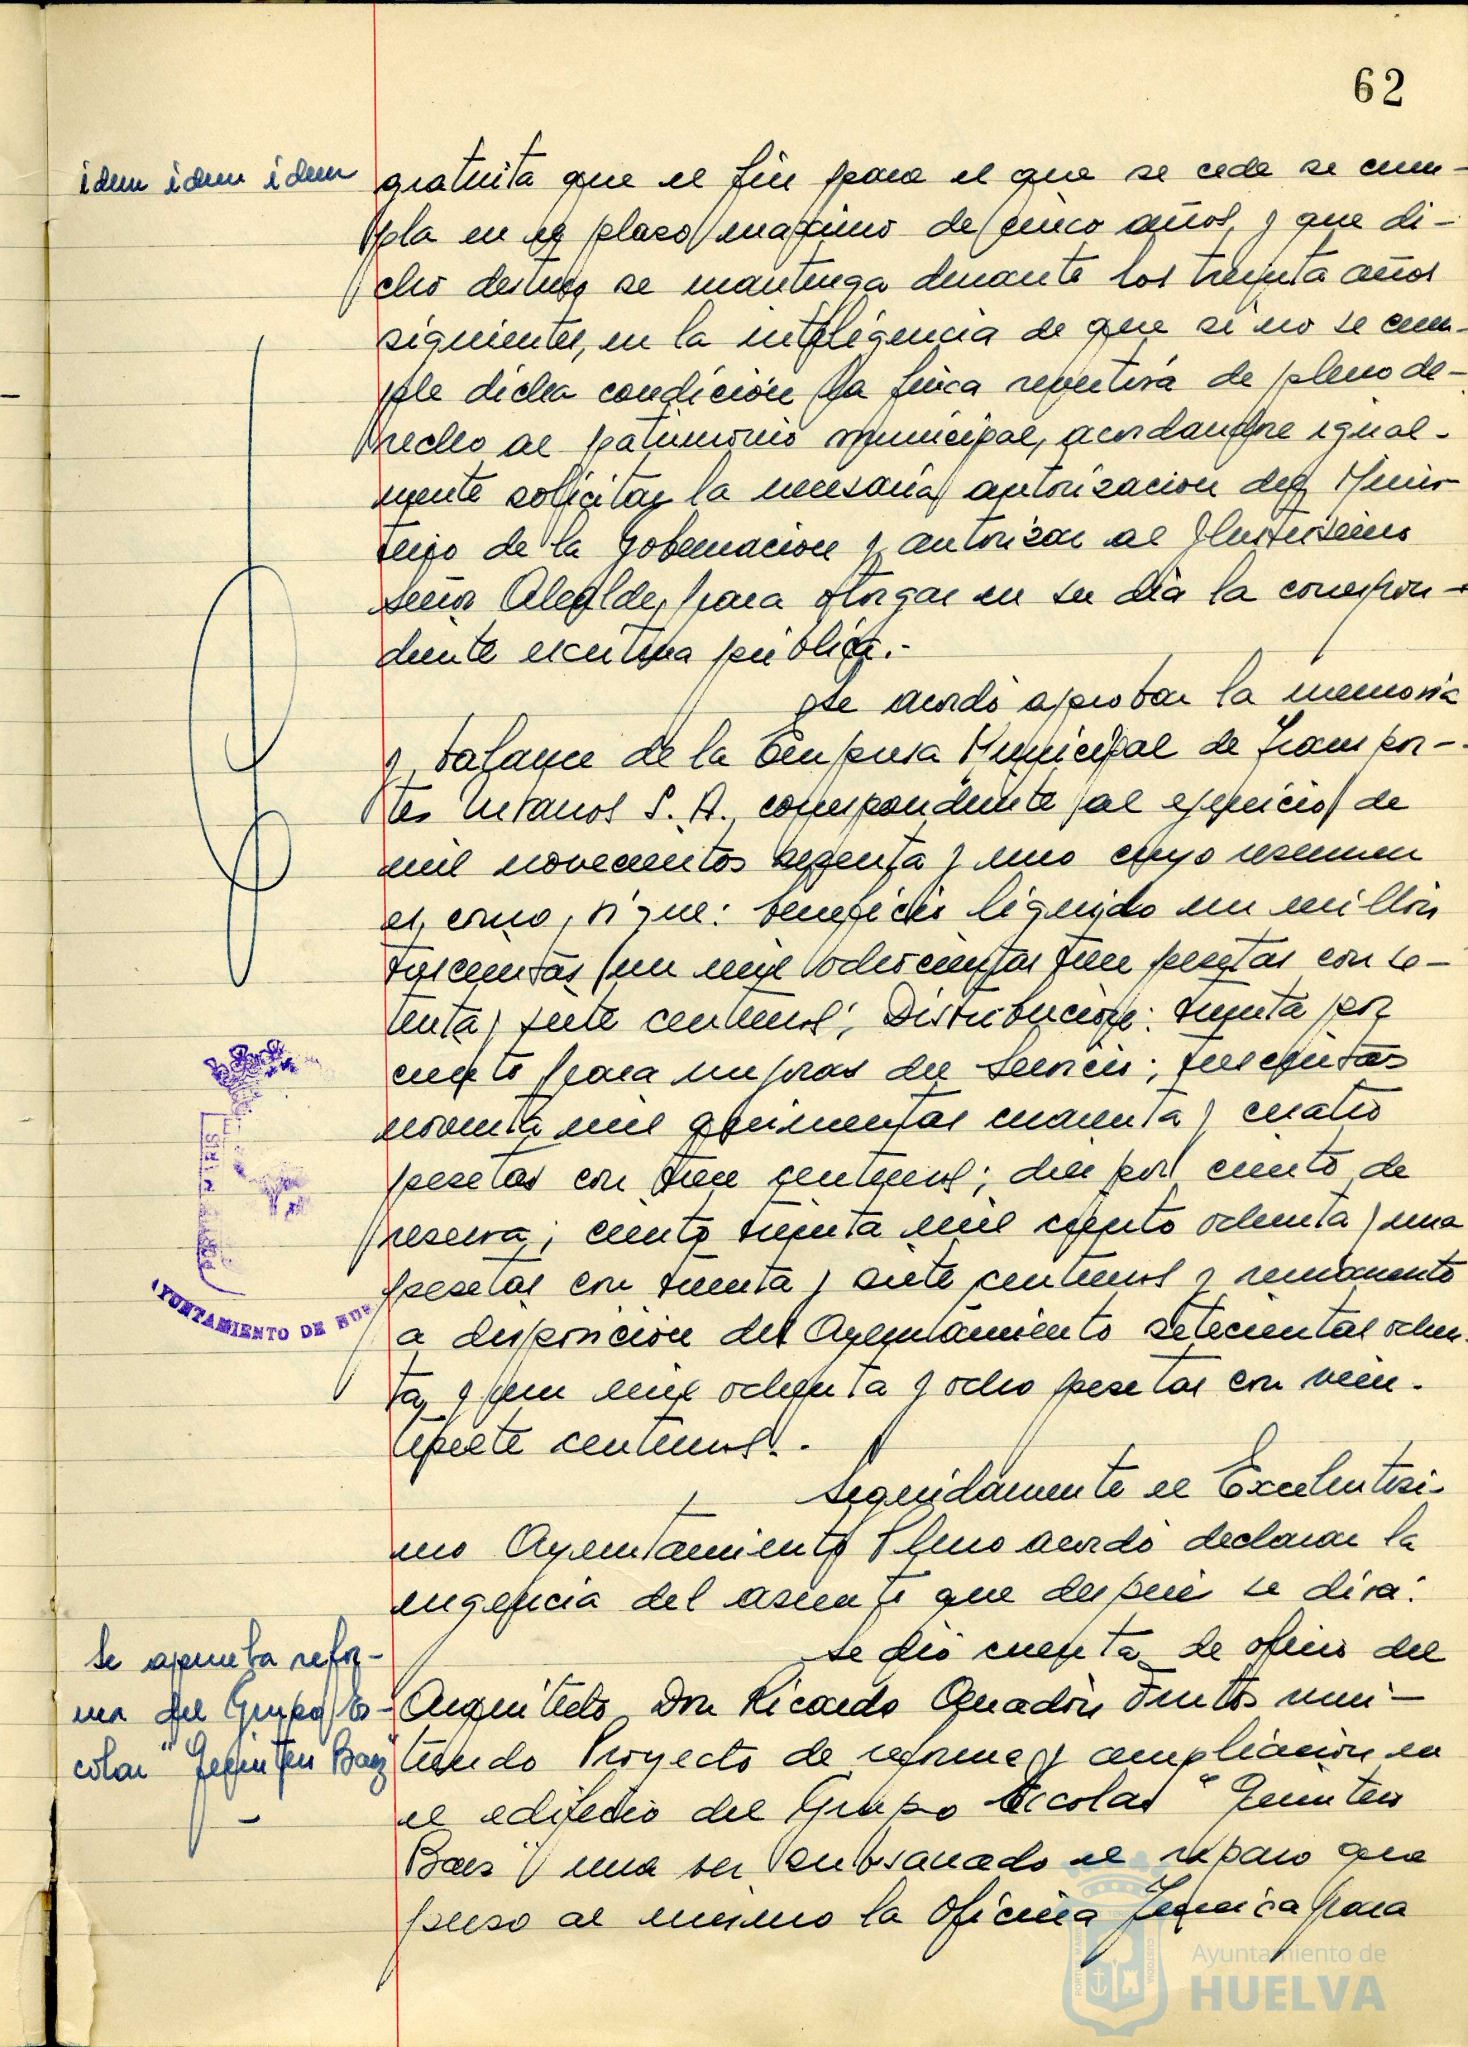 62
idem idem idem
gratuita que el fin para el que se cede se cum-
pla en el plazo maximo de cinco años, y que di-
cho destino se mantenga durante los treinta años
siguientes, en la inteligencia de que si no se cum-
ple dicha condición la finca revertirá de pleno de-
recho al patrimonio municipal, acordandose igual-
mente solicitar la necesaria autorizacion del Minis-
terio de la Gobernacion y autorizar al Ilustrisimo
Señor Alcalde, para otorgar en su dia la correspon-
diente escritura pública.-
Se acordó aprobar la memoria
y balance de la Empresa Municipal de Transpor-
tes Urbanos S. A., correspondiente al ejercicio de
mil novecientos sesenta y uno cuyo resumen
es, como sigue: beneficio liquido un millón
trescientas un mil ochocientas trece pesetas con se-
tenta y siete centimos; Distribución: treinta por
ciento para mejoras del Servicio; trescientas
noventa mil quinientas cuarenta y cuatro
pesetas con trece centimos; diez por ciento de
reserva; ciento treinta mil ciento ochenta y una
pesetas con treinta y siete centimos y remanente
a disposicion del Ayuntamiento setecientas ochen-
ta y un mil ochenta y ocho pesetas con vein-
tisiete centimos.-
Seguidamente el Excelentisi-
mo Ayuntamiento Pleno acordó declarar la
urgencia del asunto que despues se dira:
Se dió cuenta de oficio del
Arquitecto Don Ricardo Anadón Frutos remi-
tiendo Proyecto de reforma y ampliacion en
el edificio del Grupo Escolar "Quintero
Baez" una vez subsanado el reparo que
puso al mismo la Oficina Tecnica para
Se aprueba refor-
ma del Grupo Es-
colar "Quintero Baez"
PORTUS MARIS
AYUNTAMIENTO DE HUE
Ayuntamiento de
HUELVA